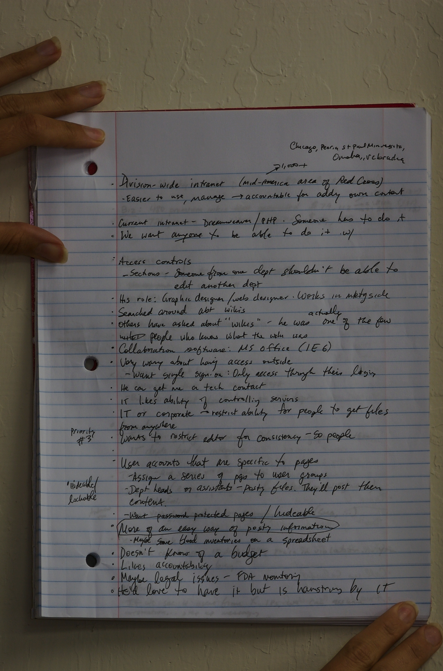 Chicago, Peoria, St Paul Minnesota,
Omaha,
Division-wide intranet (mid-America area of Red Cross)
- Easier to use, manage → accountable for adding own content
Current intranet - Dreamweaver / PHP. Someone has to do it
We want anyone to be able to do it w/
Access controls
- Sections - Someone from one dept shouldn't be able to
edit another dept
His role: Graphic designer / web designer. Works in mktg side
Searched around abt wikis
actually
Others have asked about "wikis" - he was one of the few
people who knew what the wiki was
Collaboration software: MS Office (IE6)
Very wary about having access outside
- Want single sign on: Only access through their login
He can get me a tech contact
IT likes ability of controlling servers
IT or corporate → restrict ability for people to get files
from anywhere
Priority
#3
Wants to restrict editor for consistency - so people
User accounts that are specific to pages
- Assign a series of pgs to user groups
- Dept heads or assistants - posting files. They'll post their
content.
- Want password protected pages / hideable
lockable
More of an easy way of posting information
- Might have blood inventories on a spreadsheet
Doesn't know of a budget
Likes accountability
Maybe legal issues - FDA monitoring
He'd love to have it but is hamstrung by IT